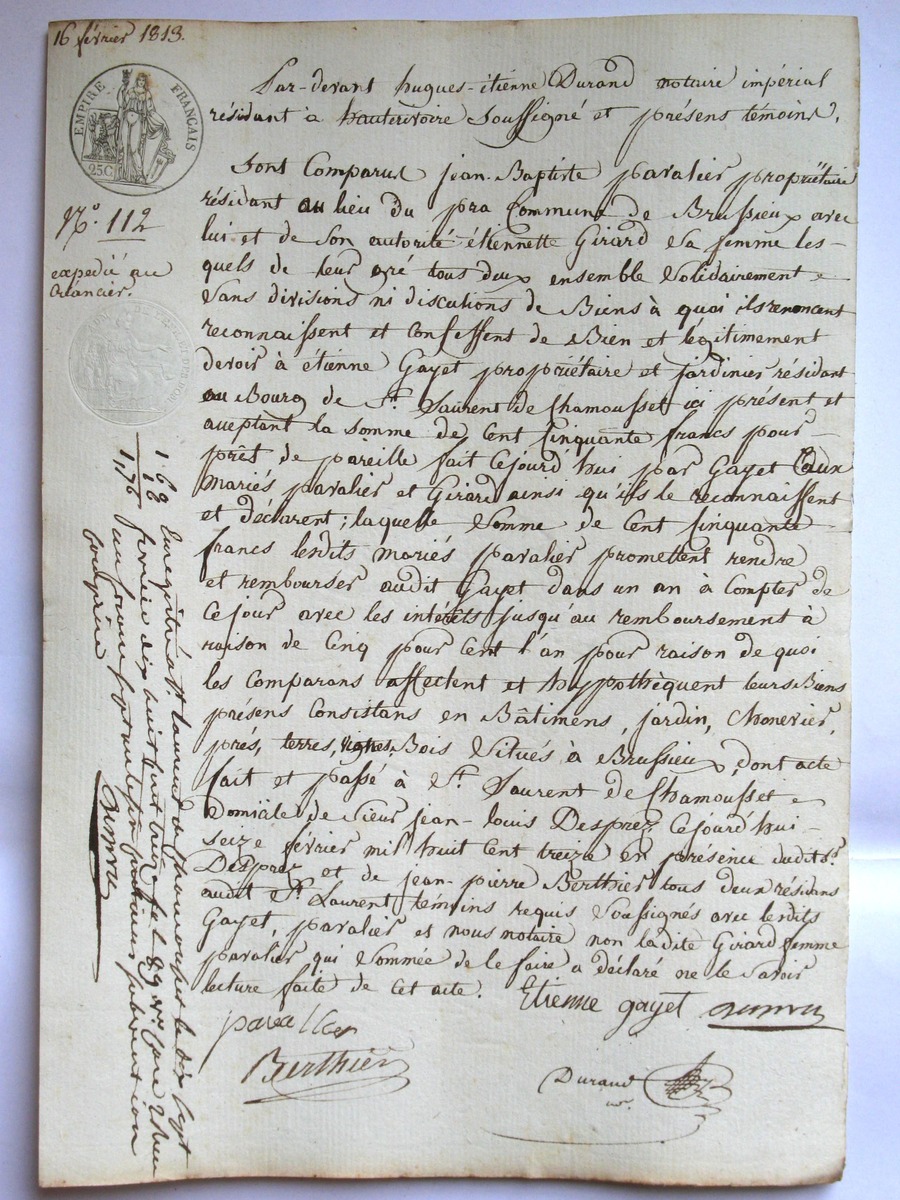 16 février 1813.
EMPIRE FRANÇAIS
25C
N.° 112
expedié au
Créancier.
Par-devant hugues-étienne Durand notaire impérial
résidant à hauterivoire soussigné et présens témoins,
Sont Comparus jean-Baptiste pavalier propriétaire
résidant au lieu du pra Commune de Brussieux avec
lui et de son autorité étiennette Girard sa femme les-
quels de leur gré tous deux ensemble solidairement
sans divisions ni discutions de Biens à quoi ils renoncent
reconnaissent et confessent de Bien et légitimement
devoir à étienne Gayet propriétaire et jardinier résidant
au Bourg de St. Laurent de Chamousset ici présent et
aceptant la somme de Cent Cinquante francs pour
prêt de pareille fait Cejourd'hui par Gayet aux
mariés pavalier et Girard ainsi qu'ils le reconnaissent
et déclarent; laquelle somme de Cent Cinquante
francs lesdits mariés pavalier promettent rendre
et rembourser audit Gayet dans un an à Compter de
Cejour avec les intérêts jusqu'au remboursement à
raison de Cinq pour Cent l'an pour raison de quoi
les Comparans affectent et hypothèquent leurs Biens
présens Consistans en Bâtimens, jardin, Chenevier,
prés, terres, vignes, Bois situés à Brussieux, dont acte
fait et passé à St. Laurent de Chamousset
Domicile de sieur jean-louis Desprez Cejourd'hui
seize février mil huit Cent treize en présence dudit Sr.
Desprez et de jean-pierre Berthier tous deux résidans
audit St. Laurent témoins requis soussignés avec lesdits
Gayet, pavalier et nous notaire non ladite Girard femme
pavalier qui sommée de le faire a déclaré ne le savoir
lecture faite de cet acte.
Etienne gayet
pavallier
Berthier
Durand
1. 60
16
1,76
Enregistré à St. Laurent de Chamousset le dix sept
février dix huit cent treize fol. 89
un franc soixante centimes subvention
comprise